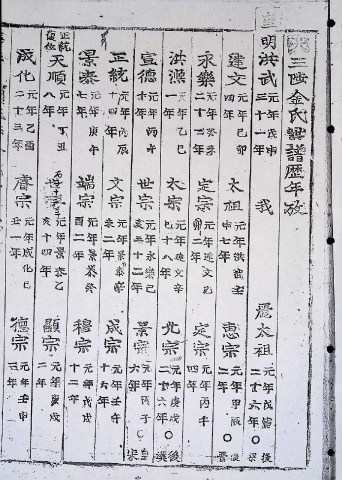 三陟金氏譜歷年攷
皇
明洪武 元年戊申 三十一年 我 麗太祖 元年戊寅 二十六年○後梁
建文 元年己卯 四年 太祖 元年洪武壬申七年 惠宗 元年甲辰 二年○後晉
永樂 元年癸未 二十二年 定宗 元年建文己卯二年 定宗 元年丙午 四年
洪熙 元年乙巳 一年 太宗 元年建文辛巳十八年 光宗 元年庚戌 二十六年○後漢
宣德 元年丙午 十年 世宗 元年永樂己亥三十二年 景宗 元年丙子 六年○皇宋
正統 元年丙辰 十四年 文宗 元年景泰辛未二年 成宗 元年壬午 十六年
景泰 元年庚午 七年 端宗 元年景泰癸酉二年 穆宗 元年戊戌 十二年
正統復位 天順 元年丁丑 八年 世 元年景泰乙亥十四年 顯宗 元年庚戌 二年
成化 元年乙酉 二十三年 睿宗 元年成化己丑一年 德宗 元年壬申 三年